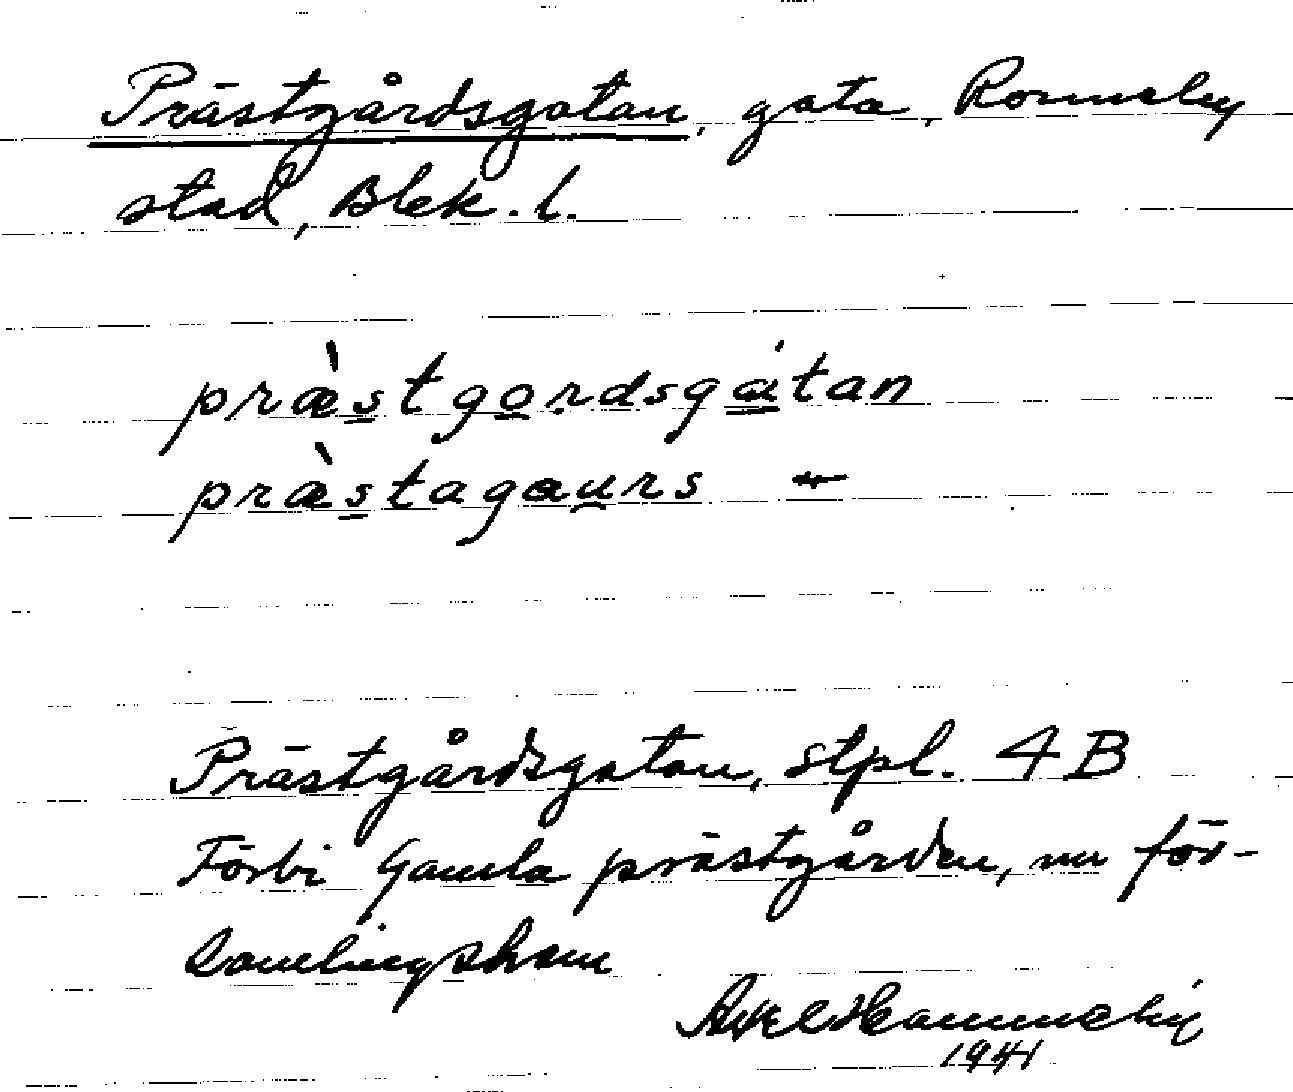 Prästgårdsgatan, gata, Ronneby
stad, Blek. l.
præ̀stgordsgátan
præ̀stagaurs –"–
Prästgårdsgatan, stpl. 4B
Förbi Gamla prästgården, nu för-
samlingshem
Axel Hammneby
1941